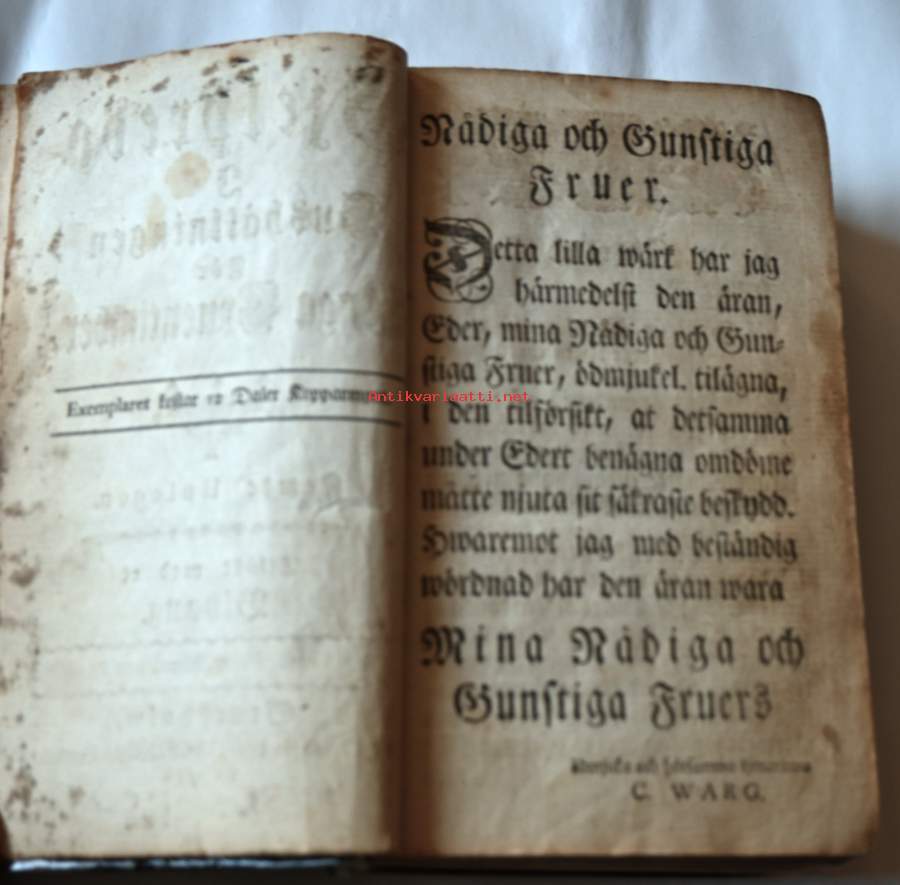 Exemplaret kostar 12 Daler Kopparmynt
Antikvariaatti.net
Nådiga och Gunstiga
Fruer.
Detta lilla wårk har jag
hårmedelst den åran,
Eder, mina Nådiga och Gun-
stiga Fruer, ödmjukel. tilågna,
i den tilförsikt, at detsamma
under Edert benågna omdöme
måtte njuta sit såkraste beskydd.
Hwaremot jag med beståndig
wördnad har den åran wara
Mina Nådiga och
Gunstiga Fruers
och
C. WARG.